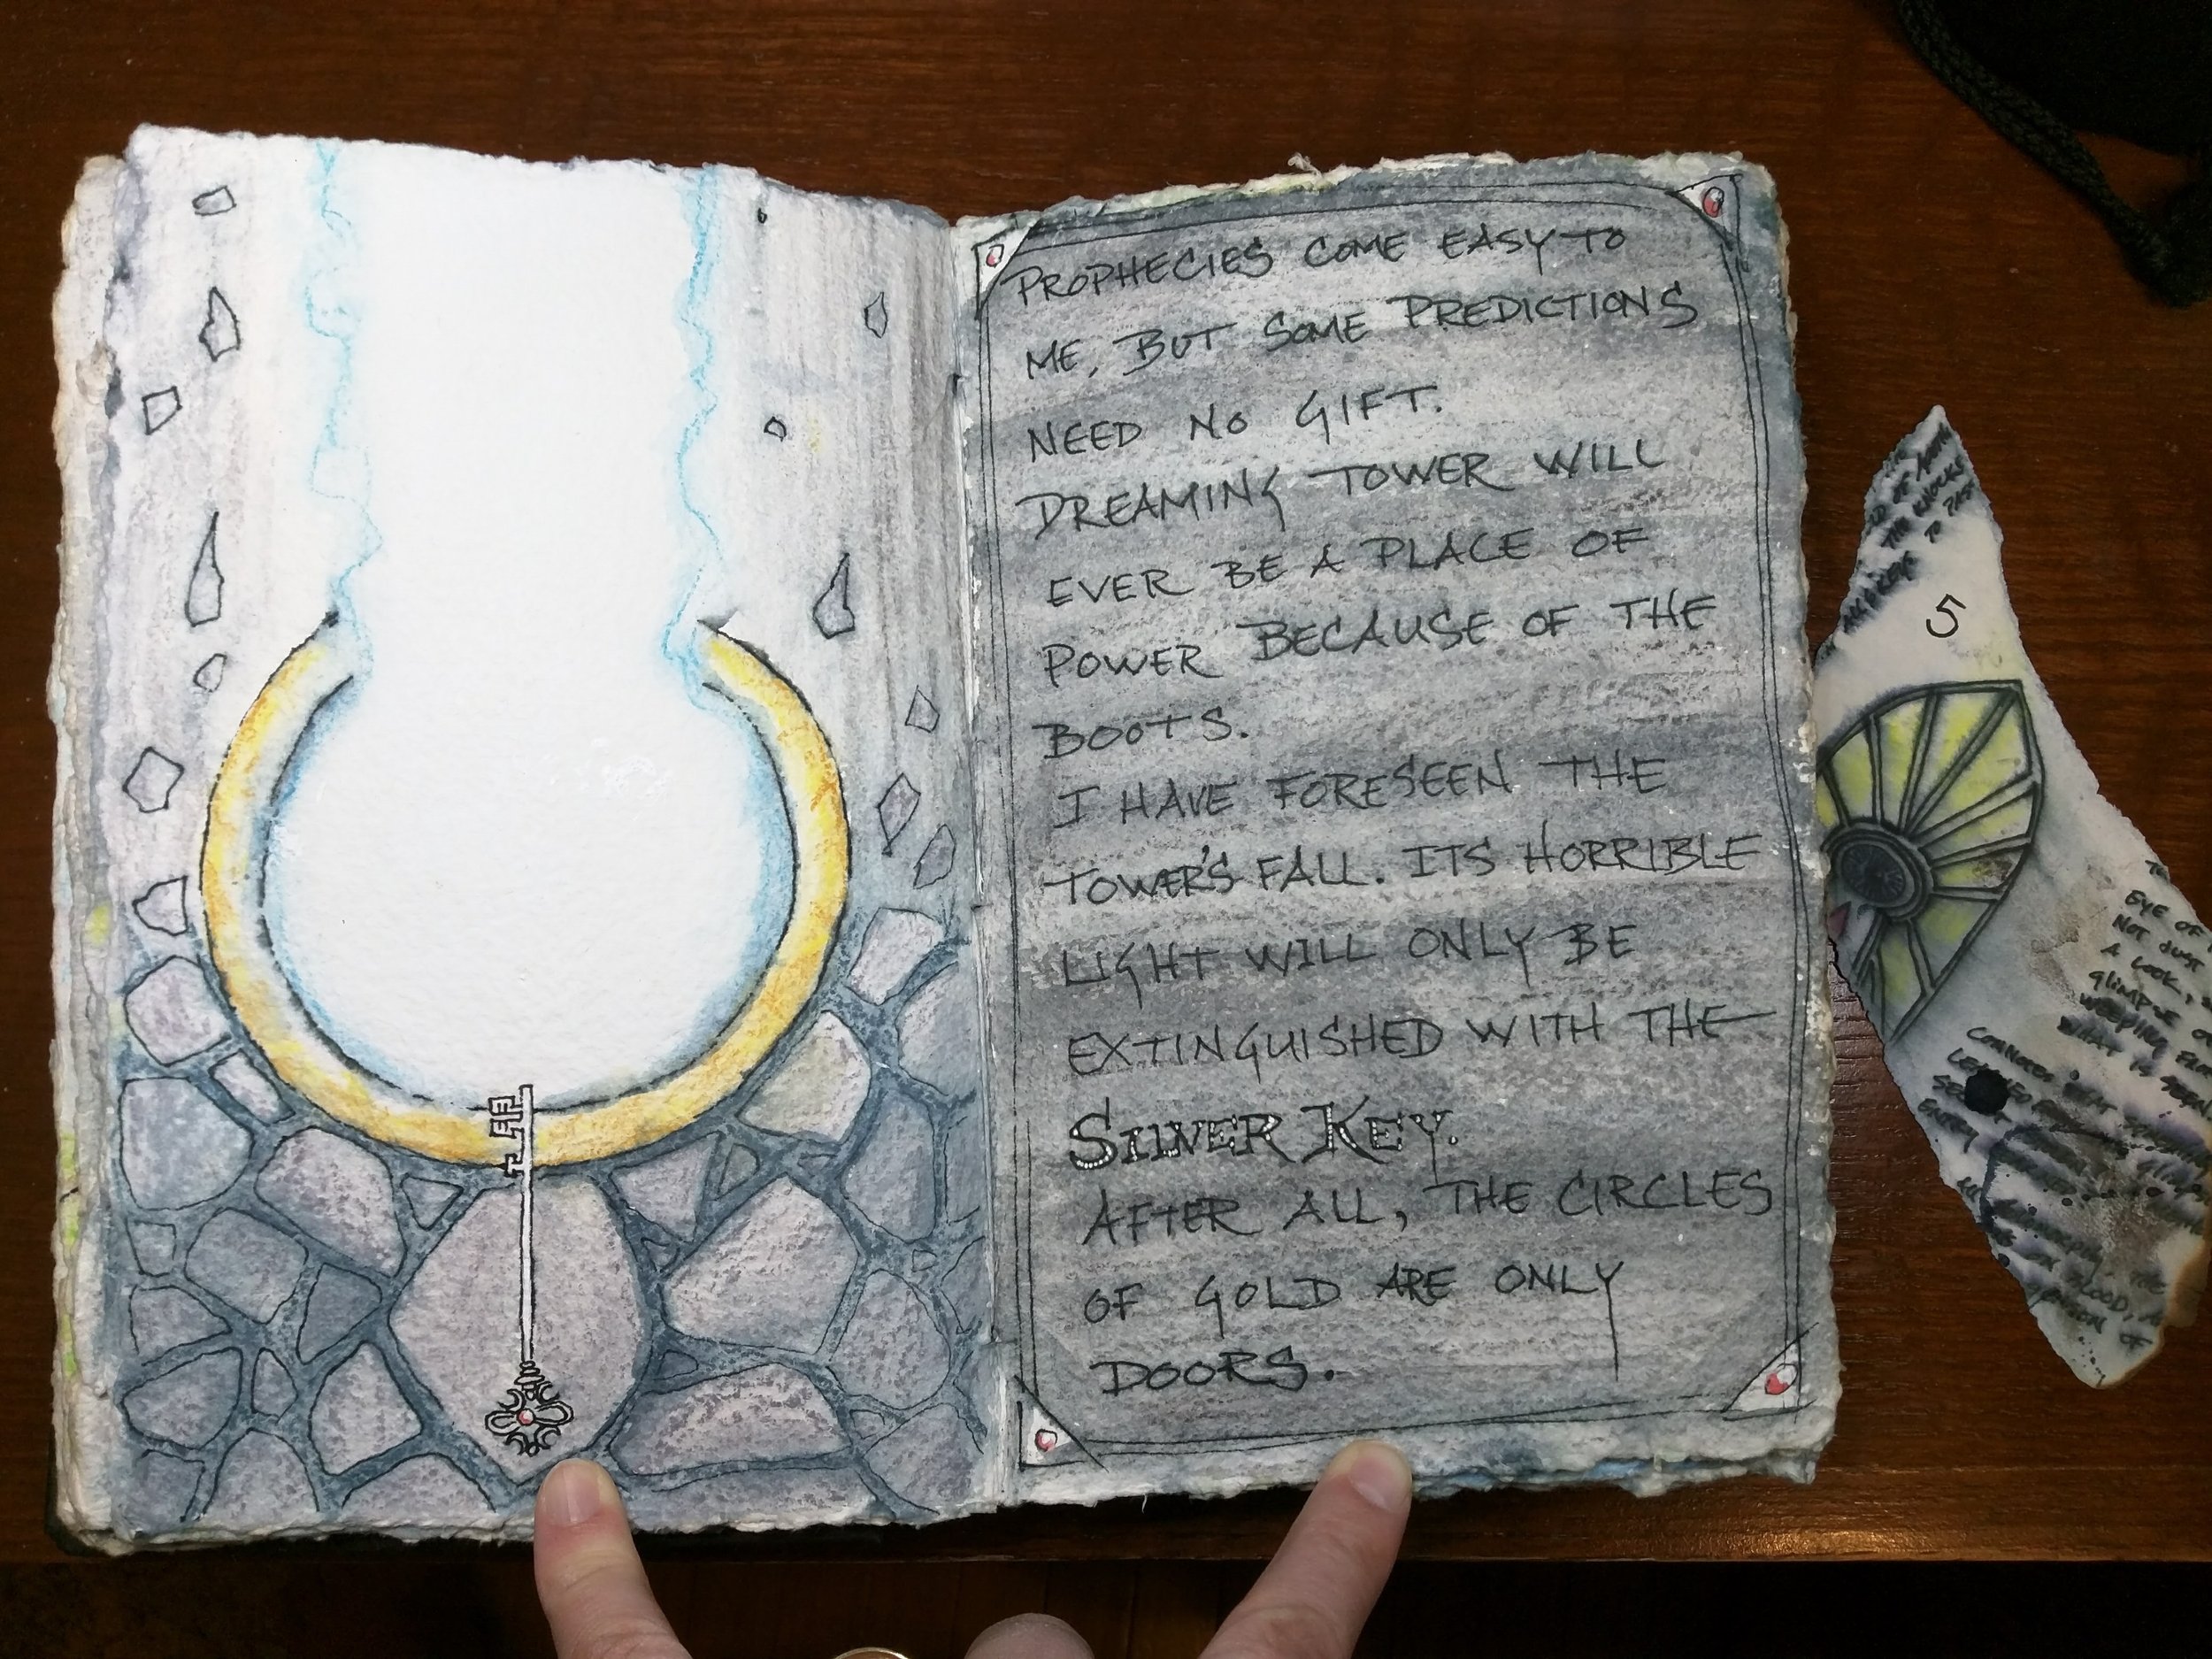 PROPHECIES COME EASY TO
ME, BUT SOME PREDICTIONS
NEED NO GIFT.
DREAMING TOWER WILL
EVER BE A PLACE OF
POWER BECAUSE OF THE
BOOTS.
I HAVE FORESEEN THE
TOWER'S FALL. ITS HORRIBLE
LIGHT WILL ONLY BE
EXTINGUISHED WITH THE
SILVER KEY.
AFTER ALL, THE CIRCLES
OF GOLD ARE ONLY
DOORS.
THE KNOCKS
TO
5
EYE OF
NOT JUST
A LOOK,
GLIMPSE
WEEPING
WHAT IS
CONNOTES
ENTRY
BLOOD,
OF